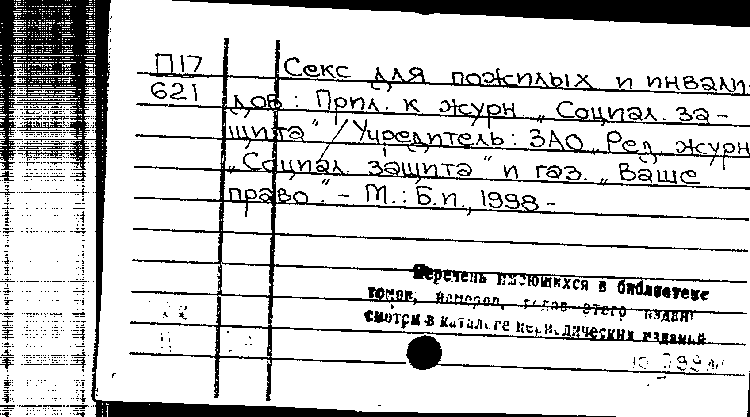 П17 Секс для пожилых и инвали-
621 дов: Прил. к журн „Социал. за-
щита" / Учредитель: ЗАО „Ред. журн
„Социал защита" и газ. „Ваше
право". – М.: Б.и., 1998 –
Перечень имеющихся в библиотеке
томов, номеров, годов этого издания
смотри в каталоге периодических изданий